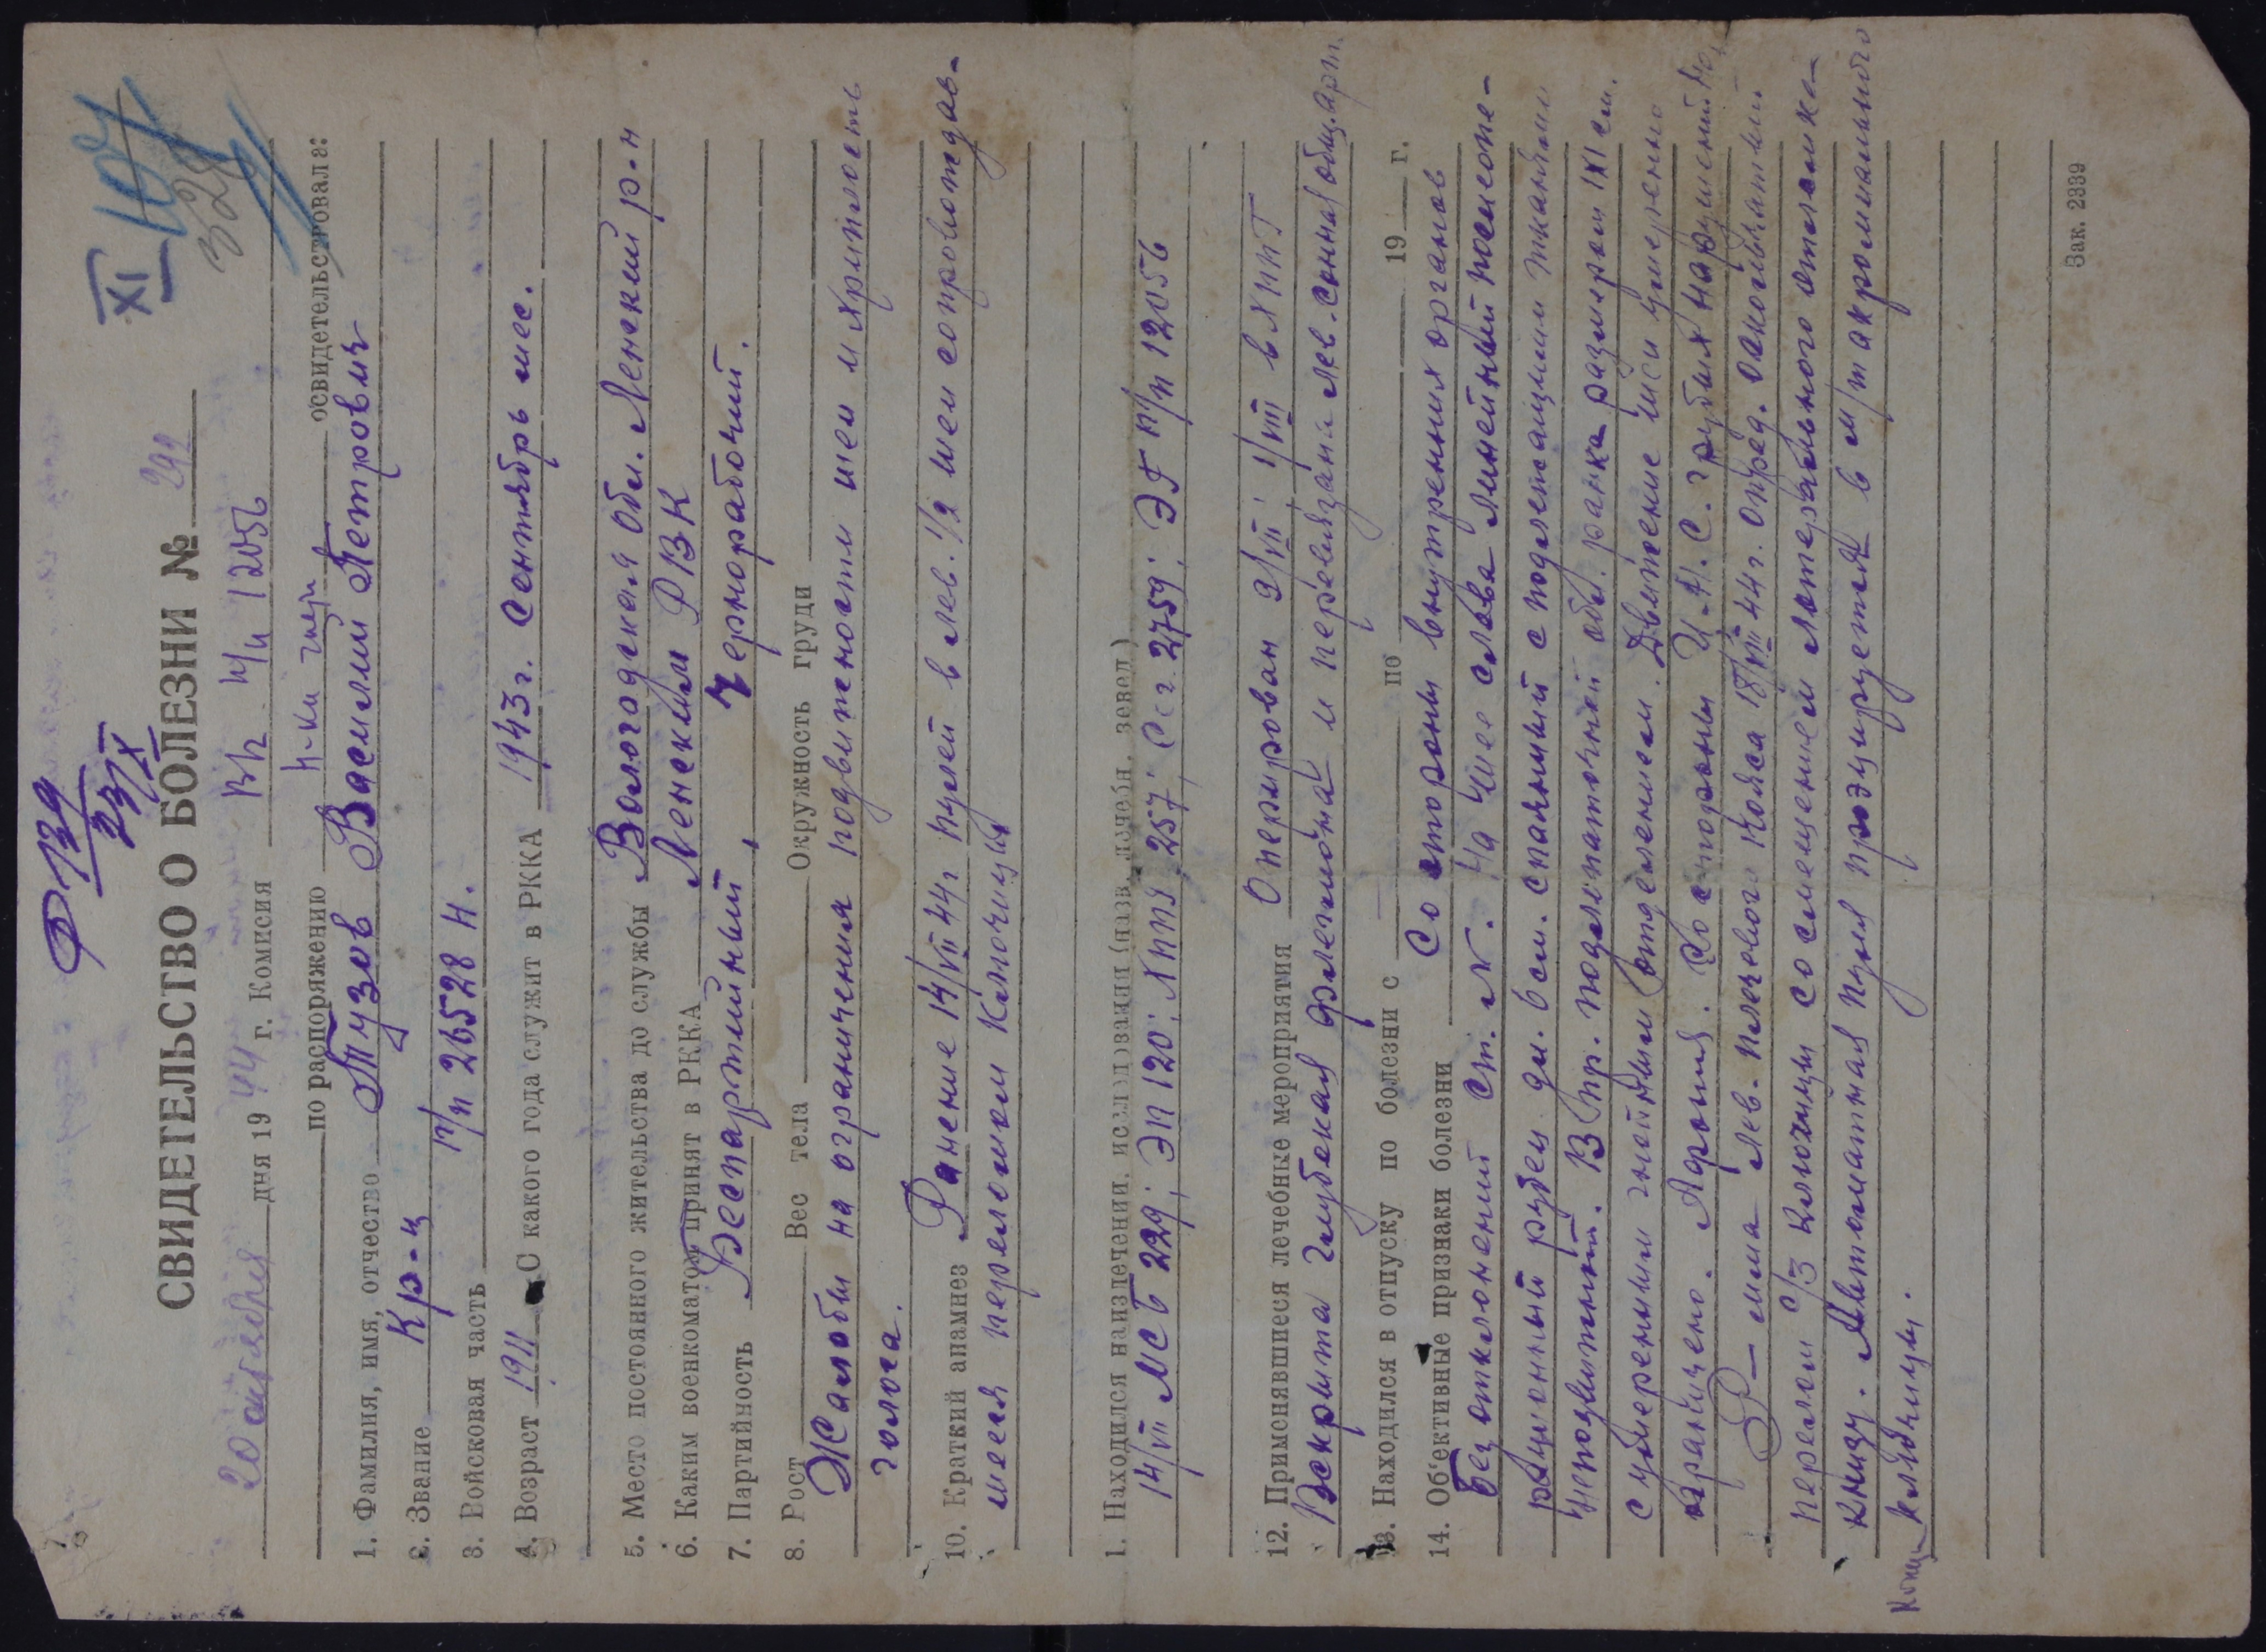 Ф 139
23/X
XI 107
328
СВИДЕТЕЛЬСТВО О БОЛЕЗНИ № 292
20 октября дня 1944 г. Комиссия ВК п/п 12056
по распоряжению н-ка освидетельствовала:
1. Фамилия, имя, отчество Тузов Василий Петрович
2. Звание Кр-ц
3. Войсковая часть п/п 26528 Н.
4. Возраст 1911 С какого года служит в РККА 1943 г. Сентябрь мес.
5. Место постоянного жительства до службы Вологодская обл. Ленский р-н
6. Каким военкоматом принят в РККА Ленским РВК
7. Партийность Беспартийный, Чернорабочий.
8. Рост Вес тела Окружность груди
Жалобы на ограничения подвижености шеи и хриплость
голоса.
10. Краткий анамнез Ранение 14/VII 44 г пулей в лев. 1/2 шеи сопровождав-
шееся переломом Ключицы
1. Находился на излечении, исследовании (назв. лечебн. завел.)
14/VII МСБ 229; ЭП 120; ХППГ 257; Ссг. 2759; ЭГ п/п 12056
12. Применявшиеся лечебные мероприятия Оперирован 2/VII; 1/VIII в ХППГ
Вскрыта глубокая флегмона и перевязана лев. сонная общ. арт.
13. Находился в отпуску по болезни с по 19 г.
14. Об'ективные признаки болезни Со стороны внутренних органов
без отклонений Ст. N. На шее слева линейный послеопе-
рационный рубец дл. 6 см. спаянный с подлежащими тканями
неподвижный. В пр. подлопаточной обл. ранка размером 1х1 см.
с умеренным гнойным отделением. Движение шеи умеренно
ограничено. Афония. Со стороны Ц.Н.С. грубых нарушений
R-мма лев. плечевого пояса 18/VIII 44 г. опред. оскольчатый
перелом с/3 ключицы со смещением латерального отломка
книзу. Автоматная пуля проэцируется в м/т акромиального
конца ключицы.
Зак. 2339